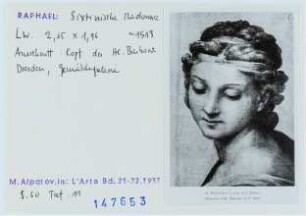 RAPHAEL: Sixtinische Madonna
Lw. 2,65 x 1,96 ~1513
Ausschnitt: Kopf der Hl. Barbara
Dresden, Gemäldegalerie
M. Alpatov, in: L'Arte Bd. 71-72, 1957
S. 60 Taf 11
147653